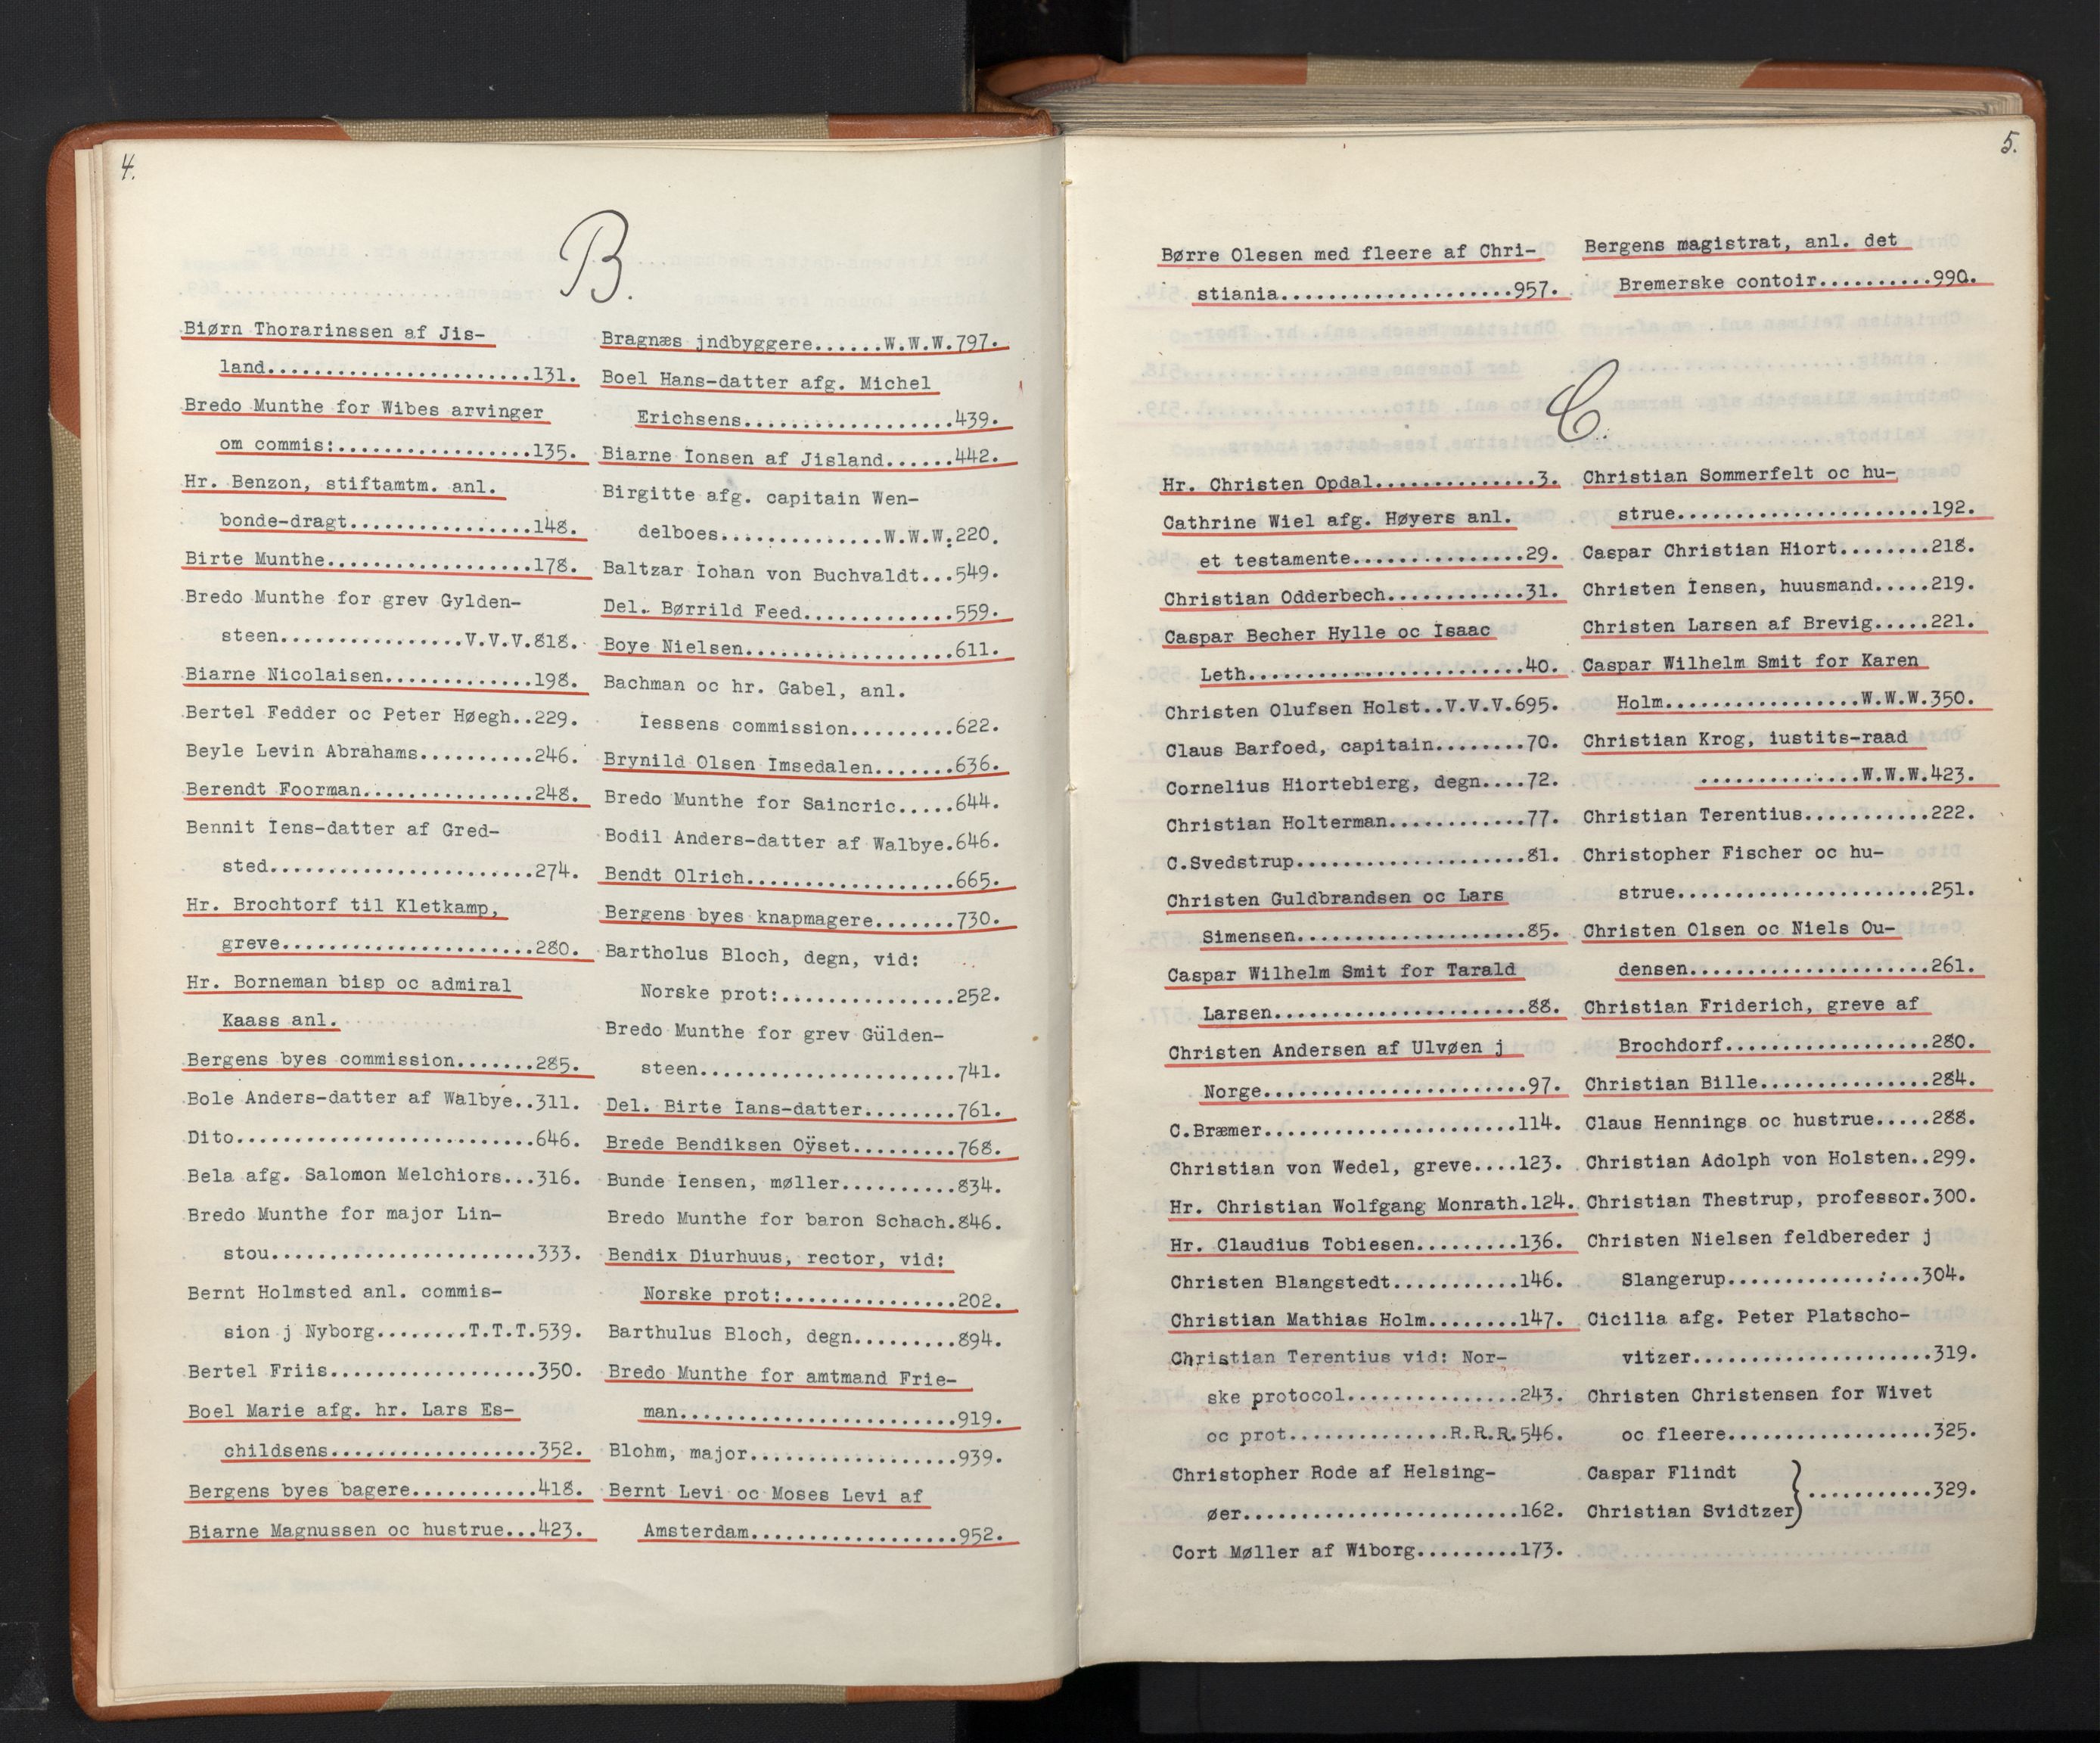 4.
B.
Biørn Thorarinssen af Jis-
land.......................131.
Bredo Munthe for Wibes arvinger
om commis:.................135.
Hr. Benzon, stiftamtm. anl.
bonde-dragt................148.
Birte Munthe..................178.
Bredo Munthe for grev Gylden-
steen................V.V.V.818.
Biarne Nicolaisen.............198.
Bertel Fedder oc Peter Høegh..229.
Beyle Levin Abrahams..........246.
Berendt Foorman...............248.
Bennit Iens-datter af Gred-
sted.......................274.
Hr. Brochtorf til Kletkamp,
greve......................280.
Hr. Borneman bisp oc admiral
Kaass anl.
Bergens byes commission.......285.
Bole Anders-datter af Walbye..311.
Dito..........................646.
Bela afg. Salomon Melchiors...316.
Bredo Munthe for major Lin-
stou.......................333.
Bernt Holmsted anl. commis-
sion j Nyborg........T.T.T.539.
Bertel Friis..................350.
Boel Marie afg. hr. Lars Es-
childsens..................352.
Bergens byes bagere...........418.
Biarne Magnussen oc hustrue...423.
Bragnæs jndbyggere......W.W.W.797.
Boel Hans-datter afg. Michel
Erichsens..................439.
Biarne Ionsen af Jisland......442.
Birgitte afg. capitain Wen-
delboes..............W.W.W.220.
Baltzar Iohan von Buchvaldt...549.
Del. Børrild Feed.............559.
Boye Nielsen..................611.
Bachman oc hr. Gabel, anl.
Iessens commission.........622.
Brynild Olsen Imsedalen.......636.
Bredo Munthe for Saincric.....644.
Bodil Anders-datter af Walbye.646.
Bendt Olrich..................665.
Bergens byes knapmagere.......730.
Bartholus Bloch, degn, vid:
Norske prot:...............252.
Bredo Munthe for grev Gülden-
steen......................741.
Del. Birte Ians-datter........761.
Brede Bendiksen Oÿset.........768.
Bunde Iensen, møller..........834.
Bredo Munthe for baron Schach.846.
Bendix Diurhuus, rector, vid:
Norske prot:...............202.
Barthulus Bloch, degn.........894.
Bredo Munthe for amtmand Frie-
man........................919.
Blohm, major..................939.
Bernt Levi oc Moses Levi af
Amsterdam..................952.
5.
Børre Olesen med fleere af Chri-
stiania....................957.
Bergens magistrat, anl. det
Bremerske contoir..........990.
C.
Hr. Christen Opdal..............3.
Cathrine Wiel afg. Høyers anl.
et testamente...............29.
Christian Odderbech............31.
Caspar Becher Hylle oc Isaac
Leth........................40.
Christen Olufsen Holst..V.V.V.695.
Claus Barfoed, capitain........70.
Cornelius Hiortebierg, degn....72.
Christian Holterman............77.
C.Svedstrup....................81.
Christen Guldbrandsen oc Lars
Simensen....................85.
Caspar Wilhelm Smit for Tarald
Larsen......................88.
Christen Andersen af Ulvøen j
Norge.......................97.
C.Bræmer......................114.
Christian von Wedel, greve....123.
Hr. Christian Wolfgang Monrath.124.
Hr. Claudius Tobiesen.........136.
Christen Blangstedt...........146.
Christian Mathias Holm........147.
Christian Terentius vid: Nor-
ske protocol...............243.
oc prot..............R.R.R.546.
Christopher Rode af Helsing-
øer........................162.
Cort Møller af Wiborg.........173.
Christian Sommerfelt oc hu-
strue......................192.
Caspar Christian Hiort........218.
Christen Iensen, huusmand.....219.
Christen Larsen af Brevig.....221.
Caspar Wilhelm Smit for Karen
Holm.................W.W.W.350.
Christian Krog, iustits-raad
..............W.W.W.423.
Christian Terentius...........222.
Christopher Fischer oc hu-
strue......................251.
Christen Olsen oc Niels Ou-
densen.....................261.
Christian Friderich, greve af
Brochdorf..................280.
Christian Bille...............284.
Claus Hennings oc hustrue.....288.
Christian Adolph von Holsten..299.
Christian Thestrup, professor.300.
Christen Nielsen feldbereder j
Slangerup.................304.
Cicilia afg. Peter Platscho-
vitzer.....................319.
Christen Christensen for Wivet
oc fleere..................325.
Caspar Flindt
Christian Svidtzer} ...........329.